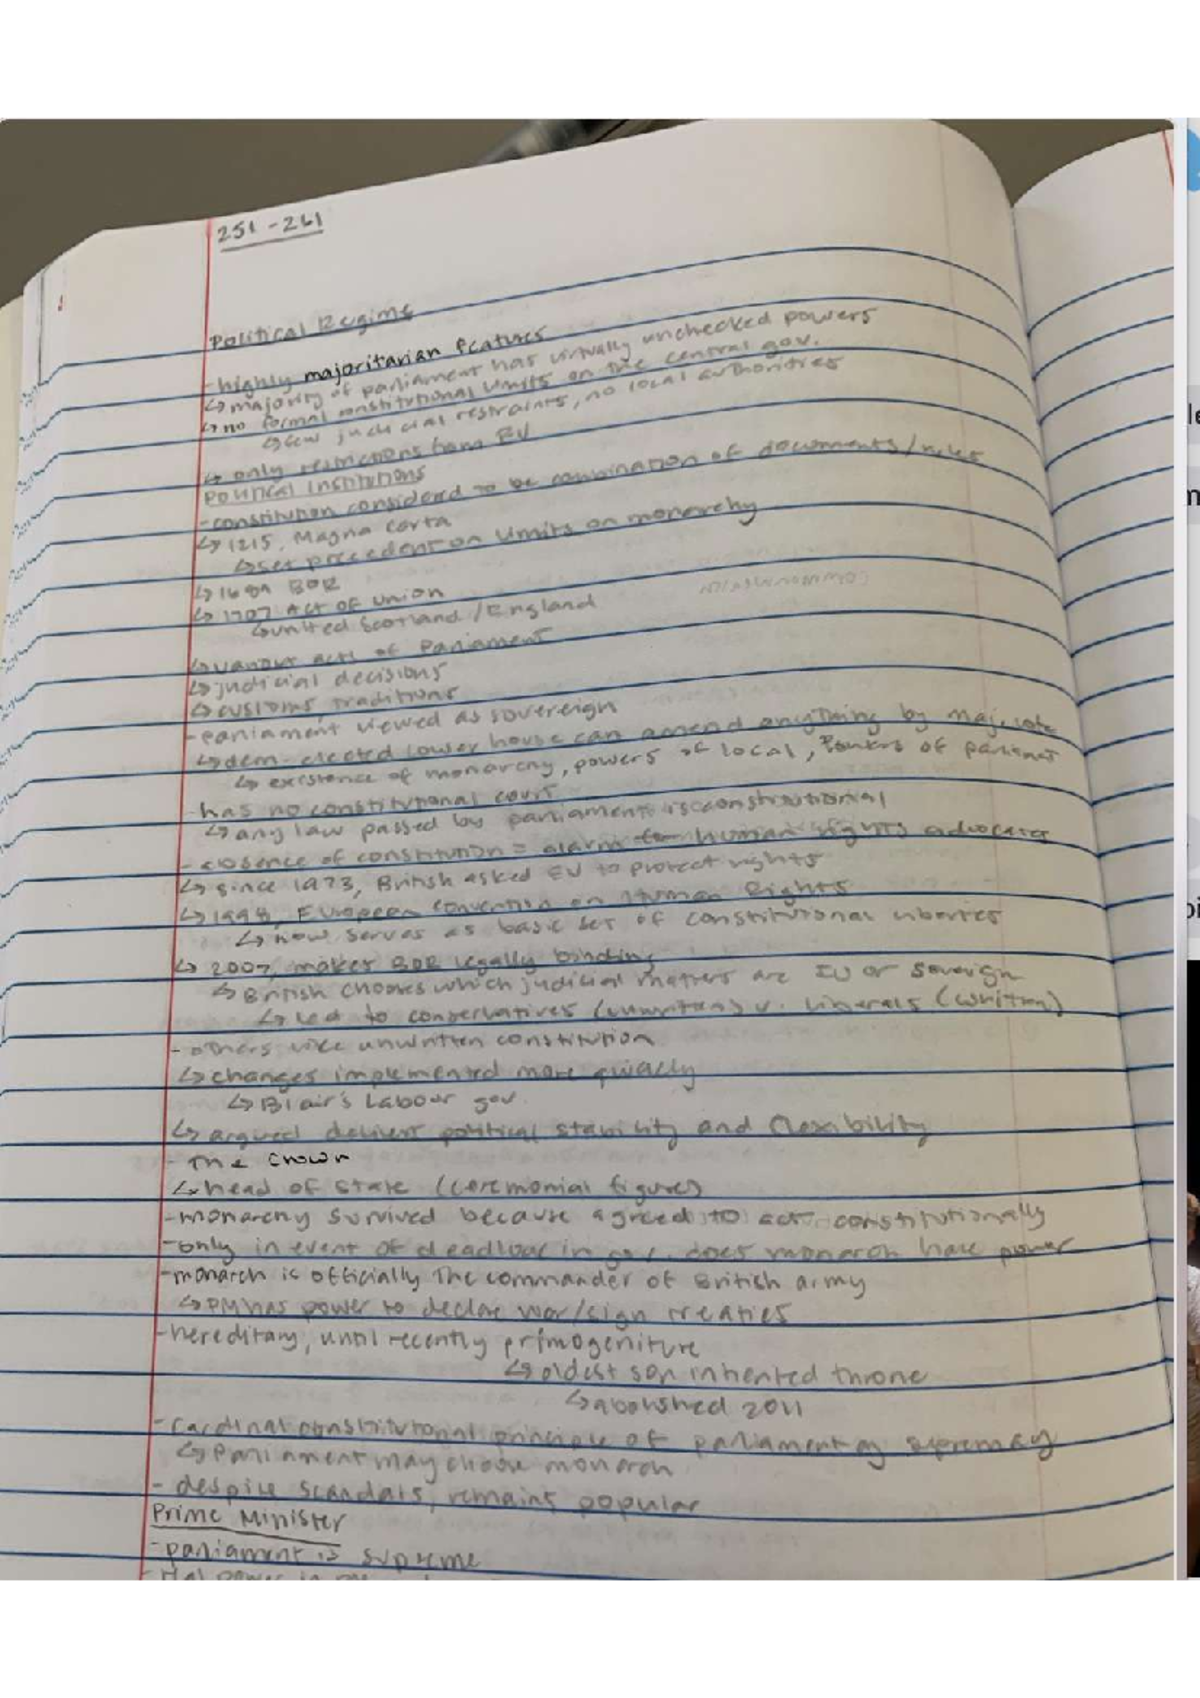 251 - 261
Political Regime
- highly majoritarian features
↳ majority of parliament has virtually unchecked powers
↳ no formal constitutional limits on the central gov.
↳ few judicial restraints, no local authorities
↳ only restrictions from EU
Political Institutions
- constitution considered to be combination of documents/rules
↳ 1215, Magna Carta
↳ set precedent on limits on monarchy
↳ 1689 BOR
↳ 1707 Act of Union
↳ united Scotland/England
↳ various acts of Parliament
↳ judicial decisions
↳ customs, traditions
- parliament viewed as sovereign
↳ dem. elected lower house can amend anything by maj. vote
↳ existence of monarchy, powers of local, powers of parliament
- has no constitutional court
↳ any law passed by parliament is constitutional
- absence of constitution = alarm to human rights advocates
↳ since 1973, British asked EU to protect rights
↳ 1998, European Convention on Human Rights
↳ now serves as basic set of constitutional liberties
↳ 2007, makes BOR legally binding
↳ British chooses which judicial matters are EU or
↳ led to conservatives (unwritten) v. liberals (written)
- others like unwritten constitution
↳ changes implemented more quickly
↳ Blair's Labour gov
↳ argued delivers political stability and flexibility
- The Crown
↳ head of state (ceremonial figures)
- monarchy survived because agreed to act constitutionally
- only in event of deadlock in gov. does monarch have power
- monarch is officially the commander of British army
↳ PM has power to declare war/sign treaties
- hereditary, until recently primogeniture
↳ oldest son inherited throne
↳ abolished 2011
- cardinal constitutional principle of parliamentary supremacy
↳ Parliament may choose monarch
- despite scandals, remains popular
Prime Minister
- parliament is supreme